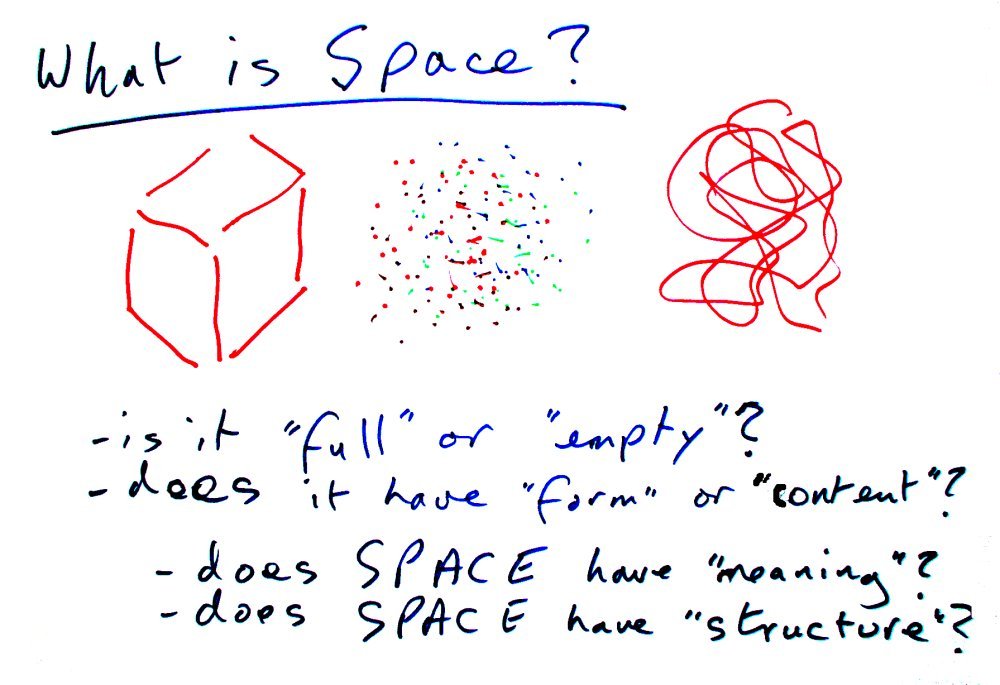 What is Space?
-is it "full" or "empty"?
-does it have "form" or "content"?
-does SPACE have "meaning"?
-does SPACE have "structure"?